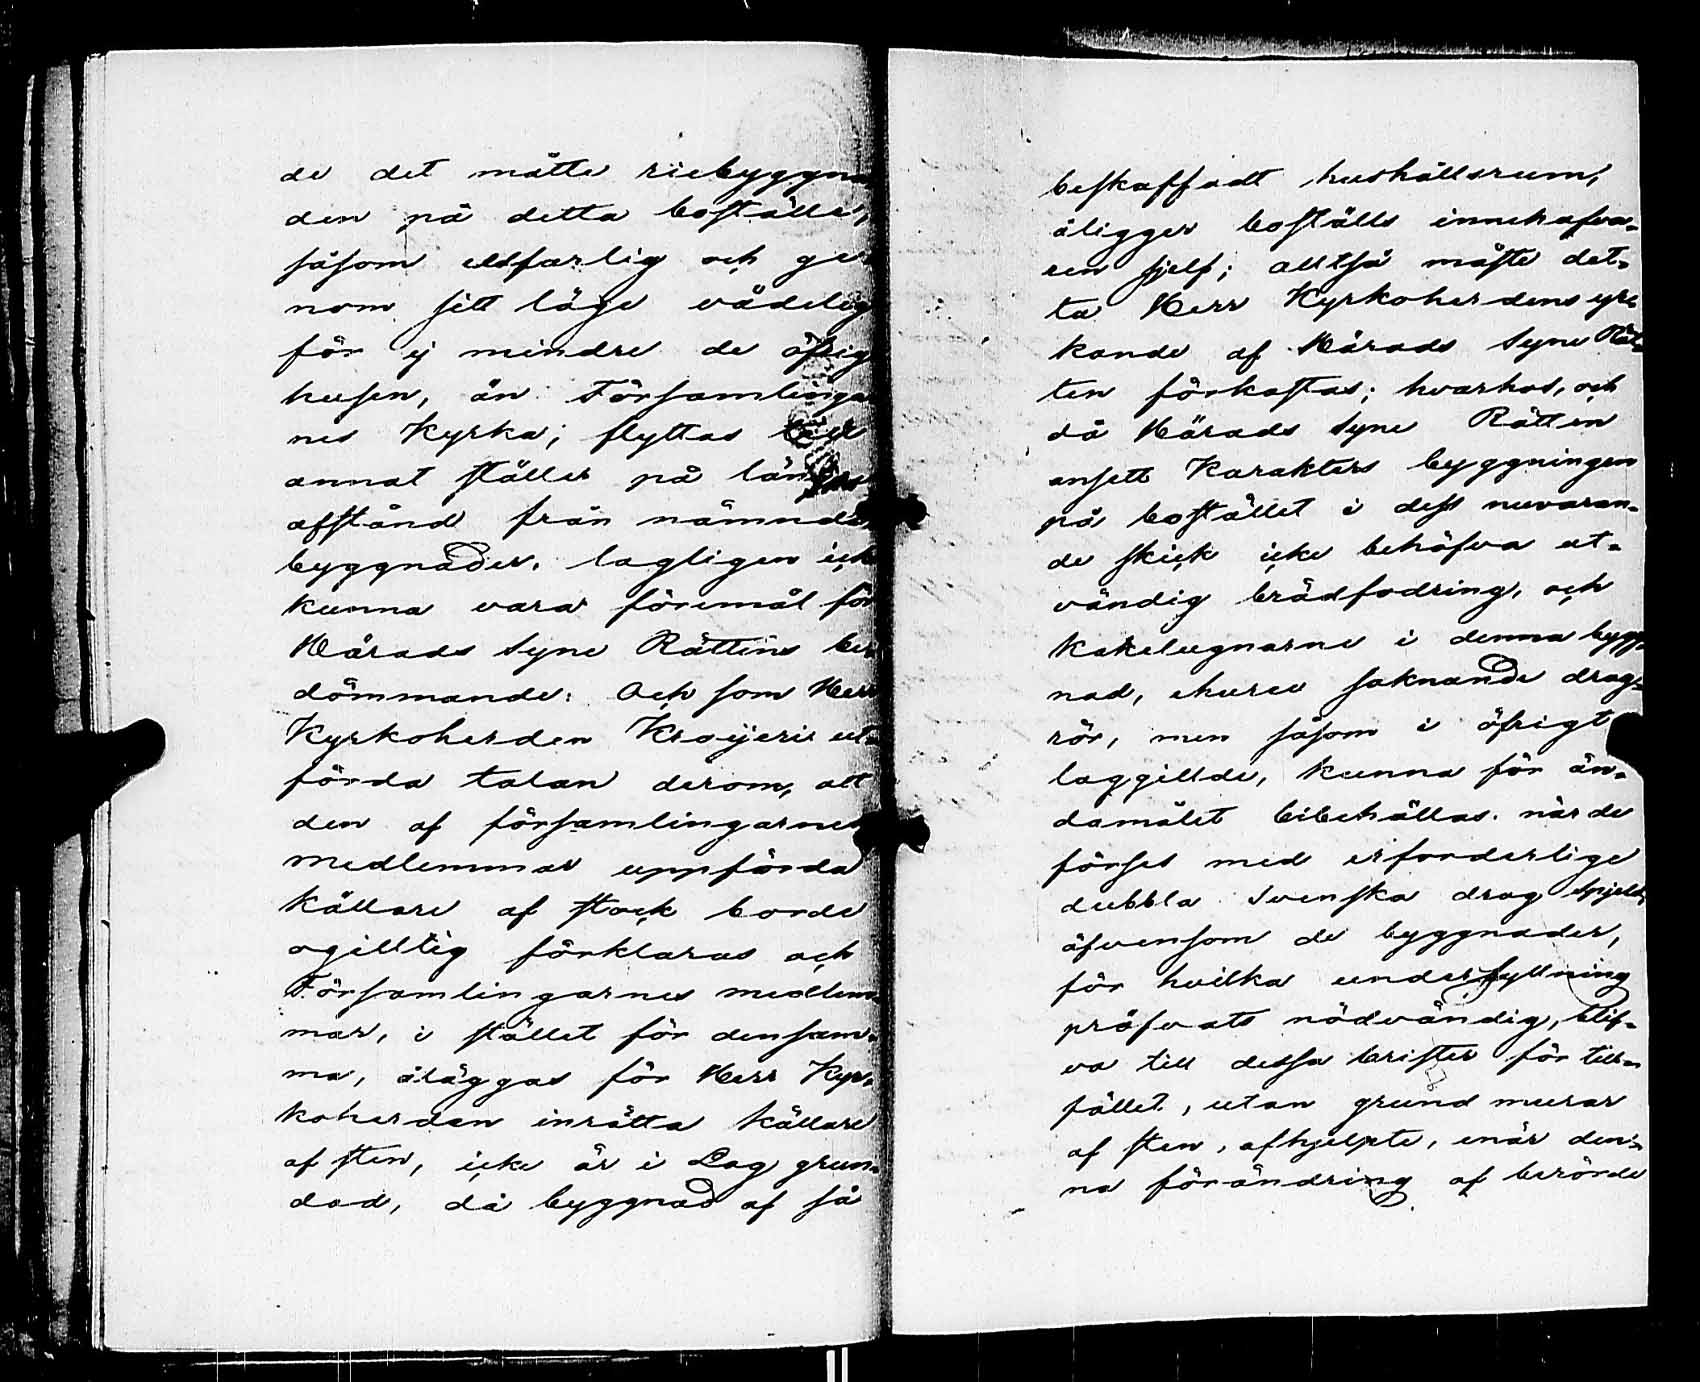 de det måtte riebyggna
den på detta boställe,
såsom eldfarlig och ge
nom sitt läge vådelig
för ej mindre de öfrig
husen, än Församlinga
nes Kyrka; flyttas till
annat ställe på län
afstånd från nämnda
byggnader, lagligen ick
kunna vara föremål för
Härads Syne Rättens be
dömmande: Och som Herr
Kyrkoherden Kroijeri ut-
förda talan derom, att
den af församlingarnes
medlemmar uppförda
källare af stock borde
ogilltig förklaras och
Församlingarnes medlem
mar, i stället för densam-
ma, åläggas för Herr Kyr-
koherden inrätta källare
af sten, icke är i Lag grun-
dad, då byggnad af så
beskaffadt hushållsrum,
åligger boställs innehafva-
ren sjelf; alltså måste det-
ta Herr Kyrkoherdens yr-
kande af Härads Syne Rät-
ten förkastas; hvarhos, och
då Härads Syne Rätten
ansett Karakters byggningen
på bostället i dess nuvaran-
de skick icke behöfva ut-
vändig brädfodring, och
kakelugnarne i denna bygg-
nad, ehuru saknande drag-
rör, men såsom i öfrigt
laggillde, kunna för än-
damålet bibehållas när de
förses med erforderlige
dubbla Svenska drag spjeld,
äfvensom de byggnader,
för hvilka underfyllning
pröfvats nödvändig, blif-
va till dessa brister för till-
fället, utan grund murar
af sten, afhjelpte, enär den-
na förändring af berörde